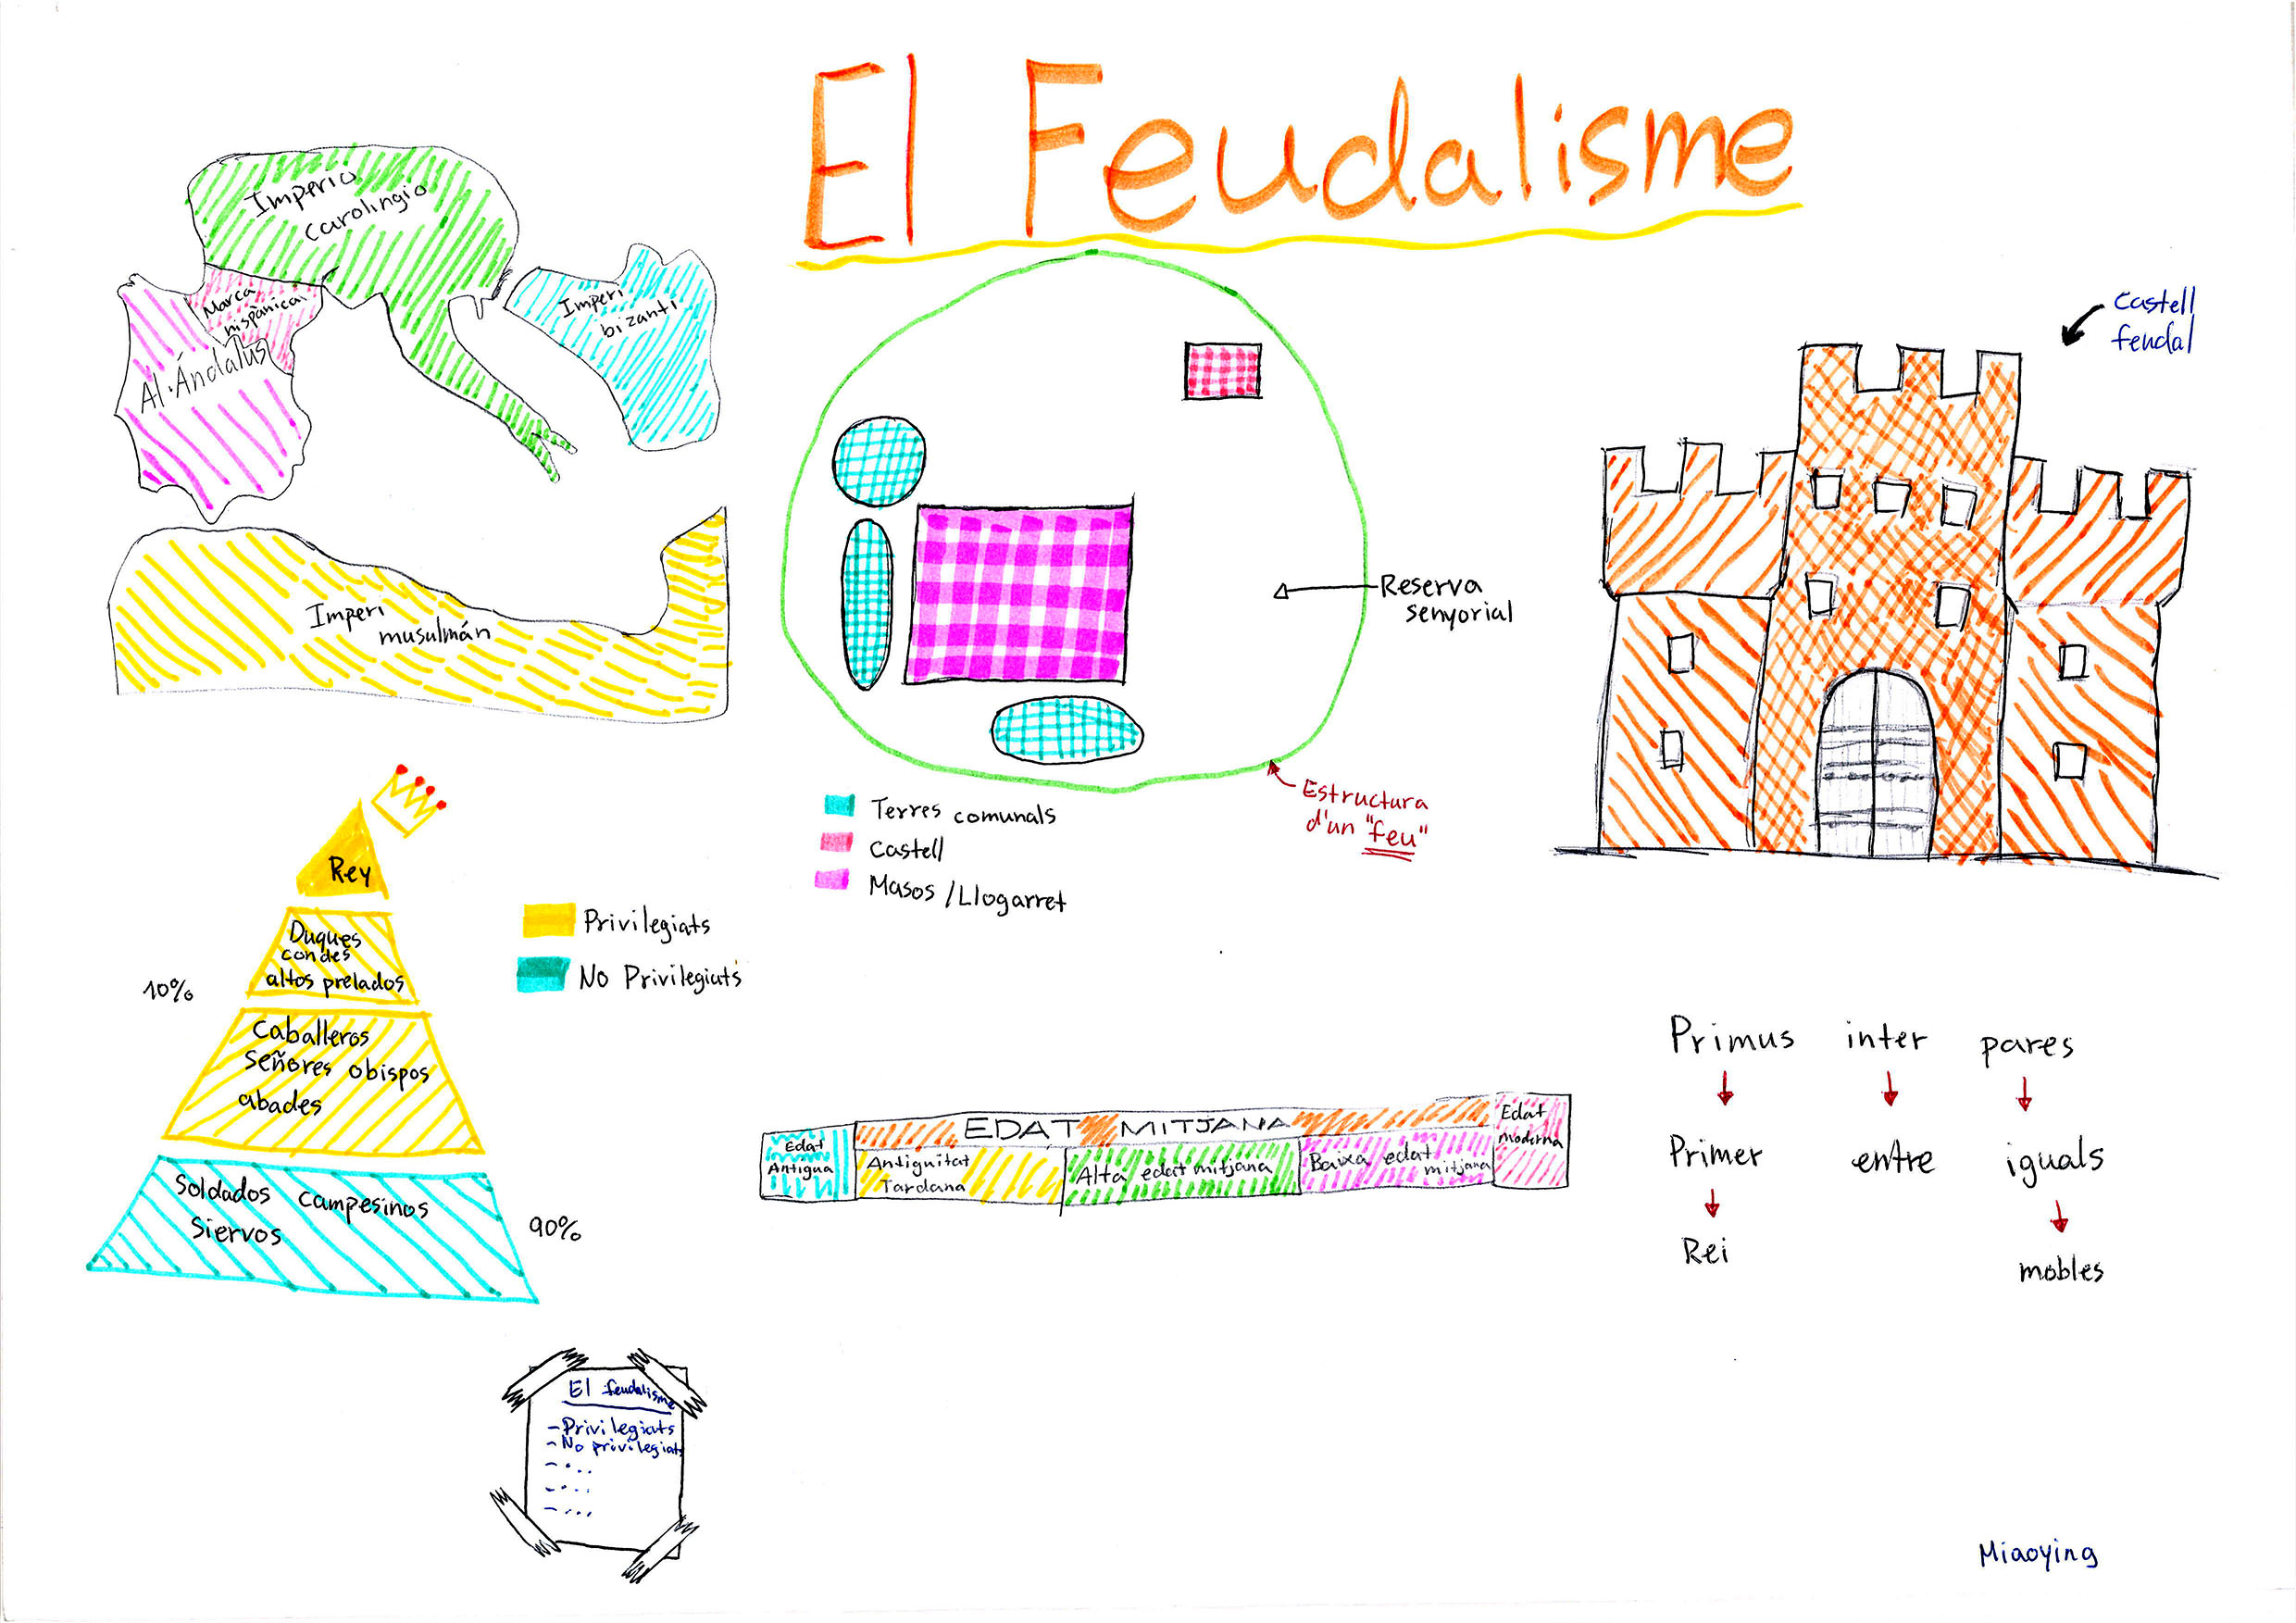 El Feudalisme
Imperio
carolingio
Marca
hispànica
Al·Ándalus
Imperi
bizantí
Imperi
musulmán
Reserva
senyorial
Estructura
d'un "feu"
Terres comunals
Castell
Masos / Llogarret
Castell
feudal
Rey
Duques
condes
altos prelados
10%
Caballeros
Señores obispos
abades
Soldados campesinos
Siervos
90%
Privilegiats
No Privilegiats
EDAT MITJANA
Edat
Antigua
Antiguitat
Tardana
Alta edat mitjana
Baixa edat
mitjana
Edat
moderna
Primus inter pares
Primer entre iguals
Rei
mobles
El feudalisme
- Privilegiats
- No privilegiats
- ...
- ...
- ...
Miaoying